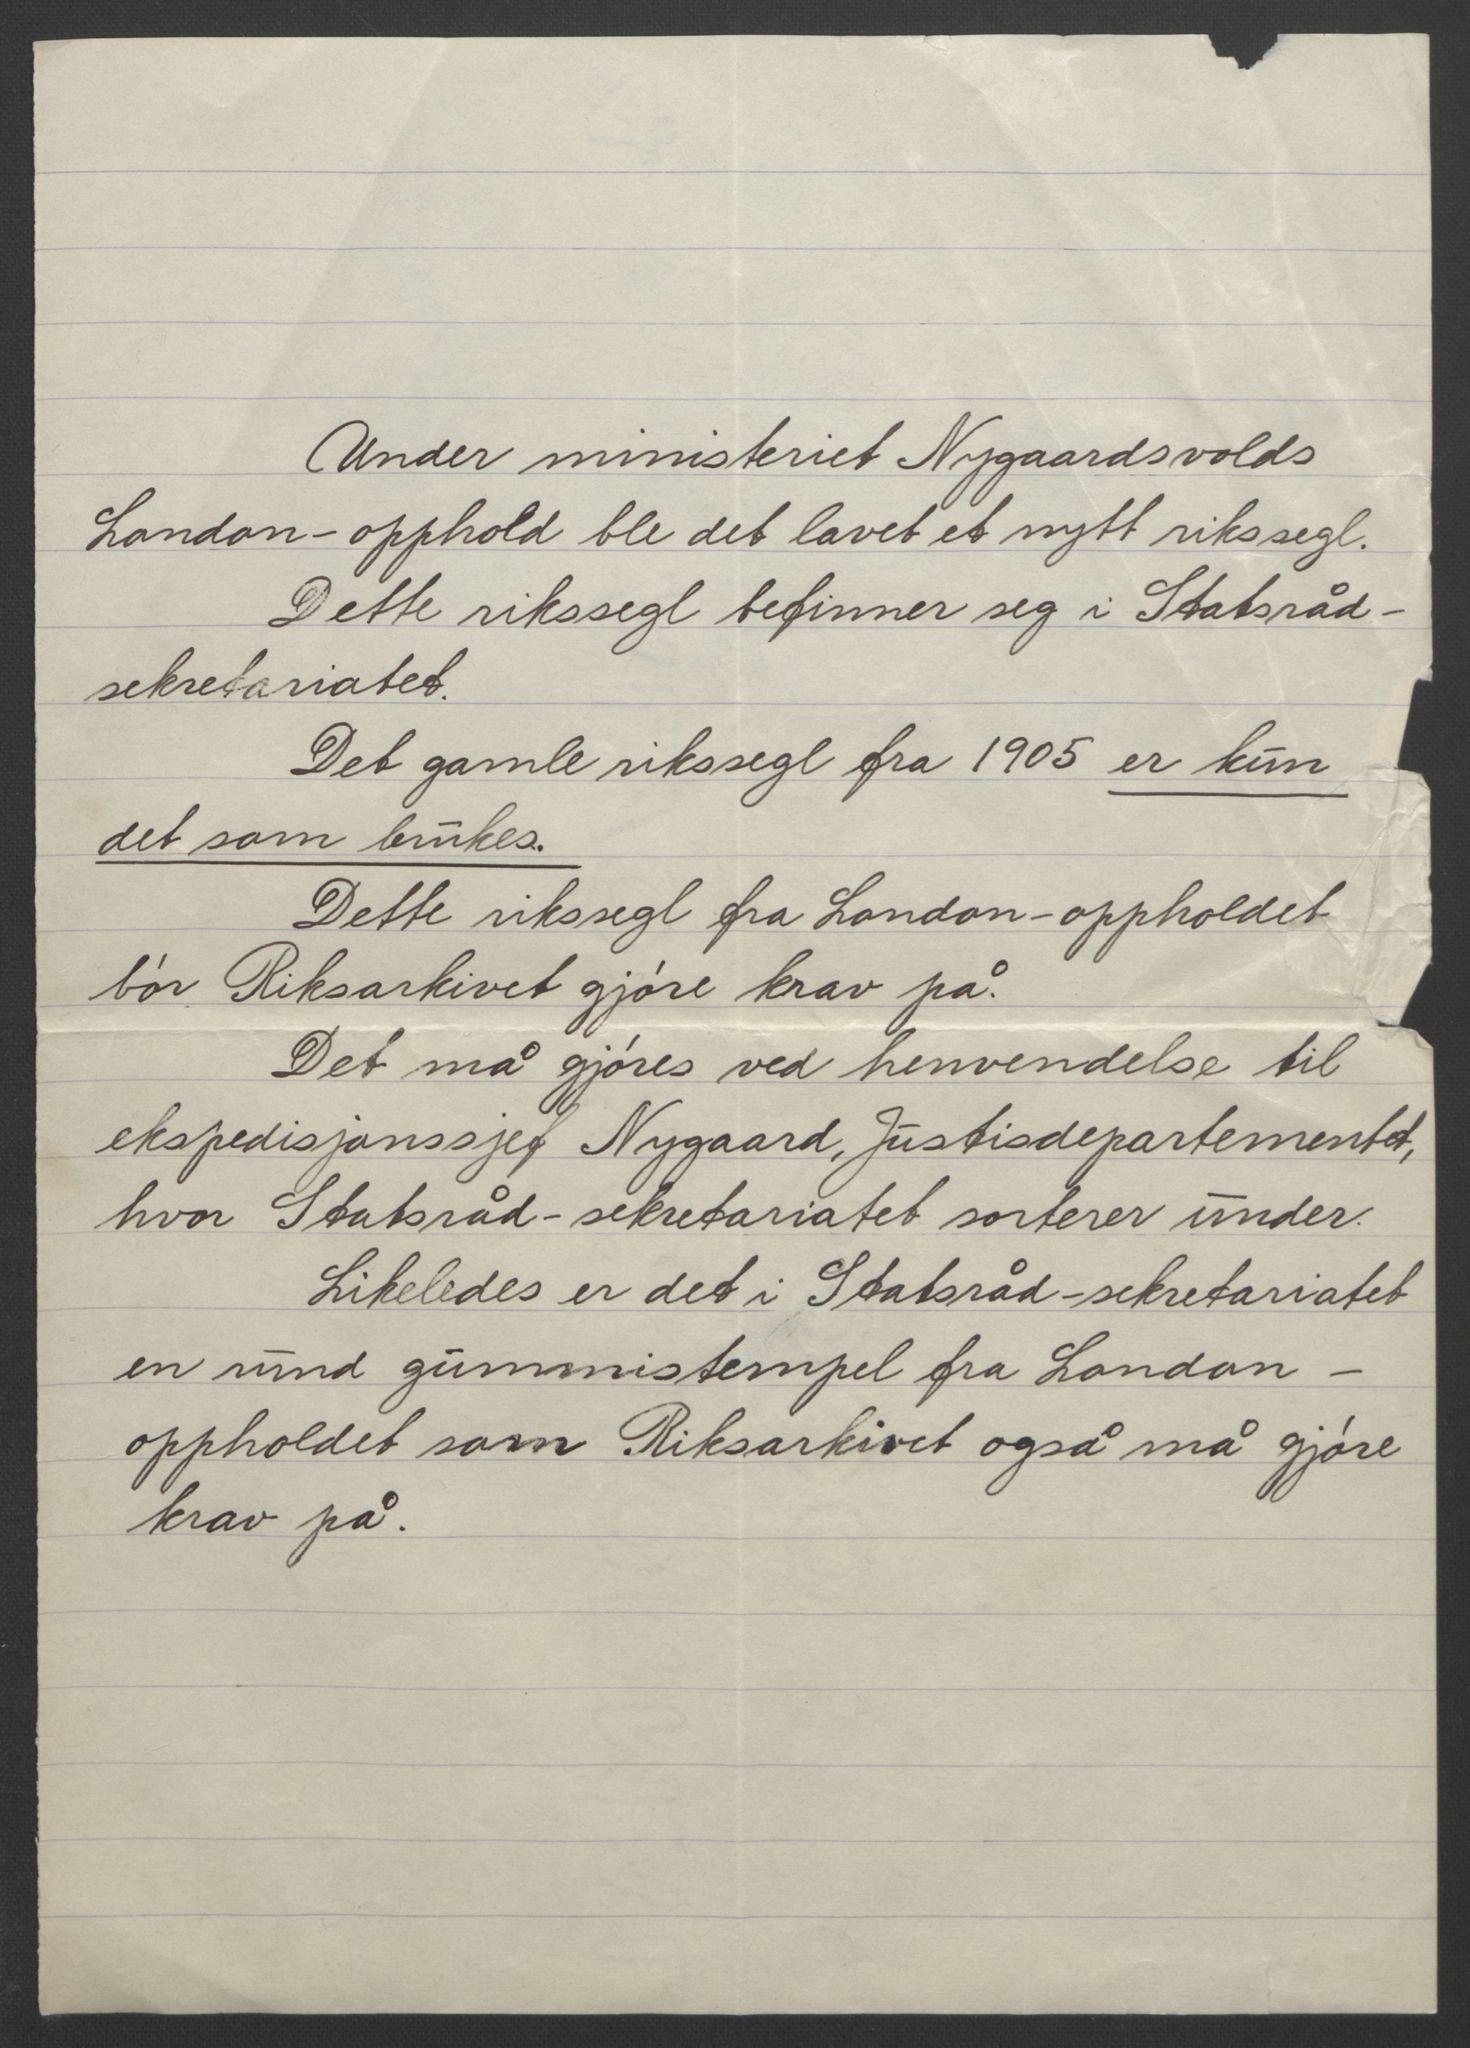 Under ministeriet Nygaardsvolds
London-opphold ble det lavet et nytt rikssegl.
Dette rikssegl befinner seg i Statsråd-
sekretariatet.
Det gamle rikssegl fra 1905 er kun
det som brukes.
Dette rikssegl fra London-oppholdet
bør Riksarkivet gjøre krav på.
Det må gjøres ved henvendelse til
ekspedisjonssjef Nygaard, Justisdepartementet,
hvor Statsråd-sekretariatet sorterer under.
Likeledes er det i Statsråd-sekretariatet
en rund gummistempel fra London-
oppholdet som Riksarkivet også må gjøre
krav på.